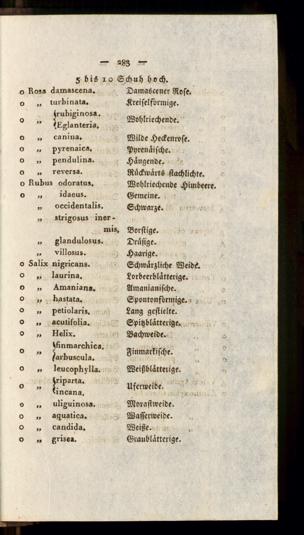 — 283 —
5 bis 10 Schuh hoch.
o Rosa damascena. Damascener Rose.
o „ turbinata. Kreiselförmige.
o „ {rubiginosa. {Eglanteria. Wohlriechende.
o „ canina. Wilde Heckenrose.
o „ pyrenaica. Pyrenäische.
o „ pendulina. Hängende.
o „ reversa. Rückwärts stachlichte.
o Rubus odoratus. Wohlriechende Himbeere.
o „ idaeus. Gemeine.
„ occidentalis. Schwarze.
„ strigosus iner-
mis. Borstige.
„ glandulosus. Drüsige.
„ villosus. Haarige.
o Salix nigricans. Schwärzliche Weide.
o „ laurina. Lorbeerblätterige.
o „ Amaniana. Amanianische.
o „ hastata. Spontonförmige.
o „ petiolaris. Lang gestielte.
o „ acutifolia. Spitzblätterige.
o „ Helix. Bachweide.
o „ {finmarchica. {arbuscula. Finmarkische.
o „ leucophylla. Weißblätterige.
o „ {riparta. {incana. Uferweide.
o „ uliguinosa. Morastweide.
o „ aquatica. Wasserweide.
o „ candida. Weiße.
o „ grisea. Graublätterige.